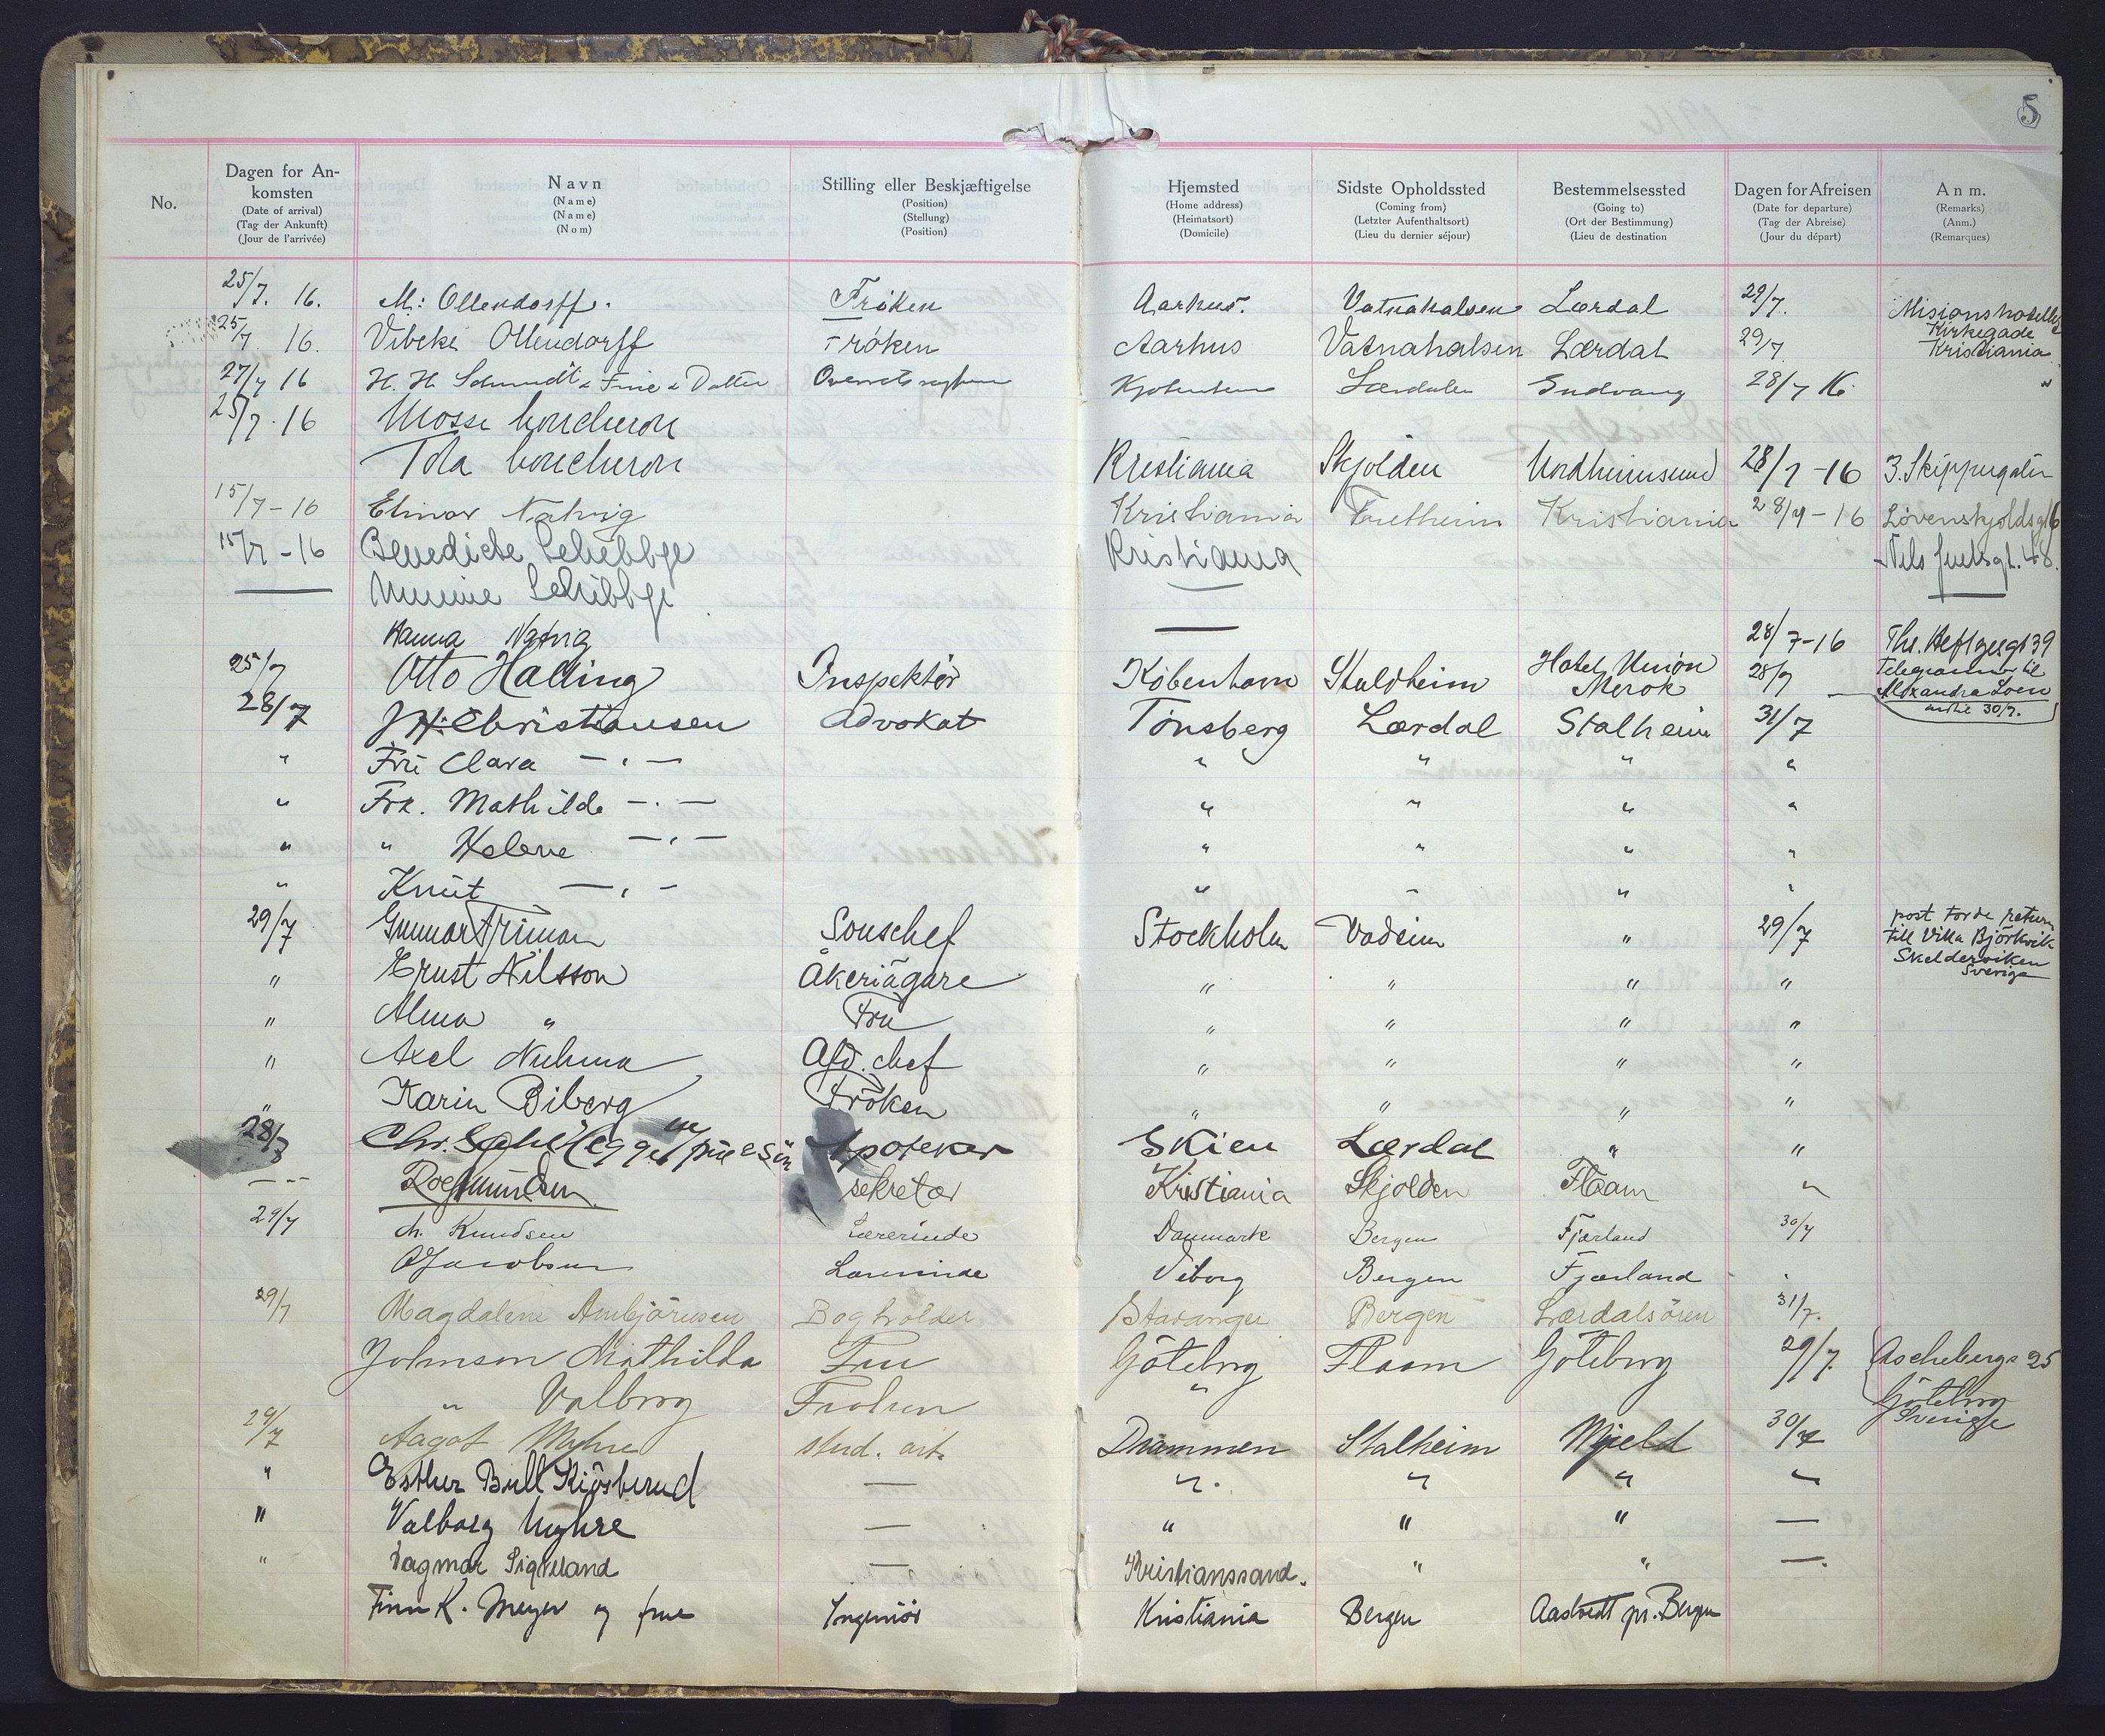 5
No. Dagen for Ankomsten (Date of arrival) (Tag der Ankunft) (Jour de l'arrivée) Navn (Name) (Name) (Nom) Stilling eller Beskjæftigelse (Position) (Stellung) (Position) Hjemsted (Home address) (Heimatsort) (Domicile) Sidste Opholdssted (Coming from) (Letzter Aufenthaltsort) (Lieu du dernier séjour) Bestemmelsessted (Going to) (Ort der Bestimmung) (Lieu de destination Dagen for Afreisen (Date for departure) (Tag der Abreise) (Jour du départ) Anm. (Remarks) (Anm.) (Remarques)
25/7. 16. M: Ollendorff. Frøken Aarhus. Vatnahalsen Lærdal 29/7. Misionshotellet
25/7 16. Vibeke Ollendorff Frøken Aarhus Vatnahalsen Lærdal 29/7 Kirkegade Kristiania
27/7 16 H. H. Schmidt & Frue & Datter Kjøbenhavn Lærdalen Gudvang 28/7 16. "
25/7. 16 Mosse
Tola Kristiania Skjolden Nordheimsund 28/7-16 3. Skippergaten
15/7-16 Elinor Natvig Kristiania Fretheim Kristiania 28/7-16 Løvenskjoldsgt 6
15/7-16 Benedicte Schibbye Kristiania Nils Juelsgt. 48.
— Schibbye —
Hanna Natvig — 28/7-16 Ths. Heftyesgt 39
25/7 Otto Halling Inspektør København Staldheim Hotel Union Merok 28/7 Telegrammer til Alexandra Loen indtil 30/7.
28/7 J. H. Christiansen Advokat Tønsberg Lærdal Stalheim 31/7
" Fru Clara —"— " " " "
" Frk. Mathilde —"— " " " "
" " Helene —"— " " " "
" Knut —"— " " " "
29/7 Gunnar Friman Souschef Stockholm Vadeim " 29/7 post Førde return till Villa Björkvik Skelderviken Sverige
" Ernst Nilsson Åkeriägare " " " "
" Alma " Fru " " " "
" Axel Afd. chef " " " "
" Karin Biberg Fröken " " " "
28/7 Chr. Apoteker Skien Lærdal " "
— sekretær Kristiania Skjolden Flaam "
29/7 Knudsen Lærerinde Danmark Bergen Fjærland 30/7
Jacobsen Lærerinde Viborg Bergen Fjærland "
29/7 Magdalene Ambjörnsen Bogholder Stavanger Bergen Lærdalsören 31/7.
Johnson Mathilda Fru Göteborg Flaam Göteborg 29/7. Aschebergs 25
" Valborg Fröken " Göteborg Sverige
29/7 Aagot Myhre stud. art. Drammen Stalheim Mjeld 30/7
" Esther Bull Kiøsterud — " " " "
" Valborg Myhre — " " " —
" Dagmar Sigveland — Kristianssand. " " —
Finn K. Meyer og frue Ingeniør Kristiania Bergen Aastvedt pr. Bergen